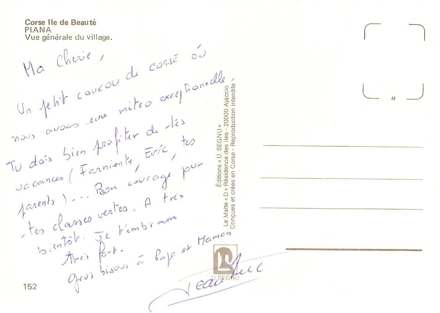 Corse Ile de Beauté
PIANA
Vue générale du village.
Ma Cherie,
Un petit coucou de corse où
nous avons une méteo exceptionnelle,
Tu dois bien profiter de tes
vacances (Farniente, Eric, tes
parents)... Bon courage pour
tes classes vertes. A tres
bientôt. Je t'embrasse
très fort.
Gros bisous à Papa et Maman
Jean Luc
152
Éditions « U. SEGNU »
Le Matte « D » Résidence des Iles - 20000 Ajaccio
Conçues et créées en Corse - Reproduction interdite